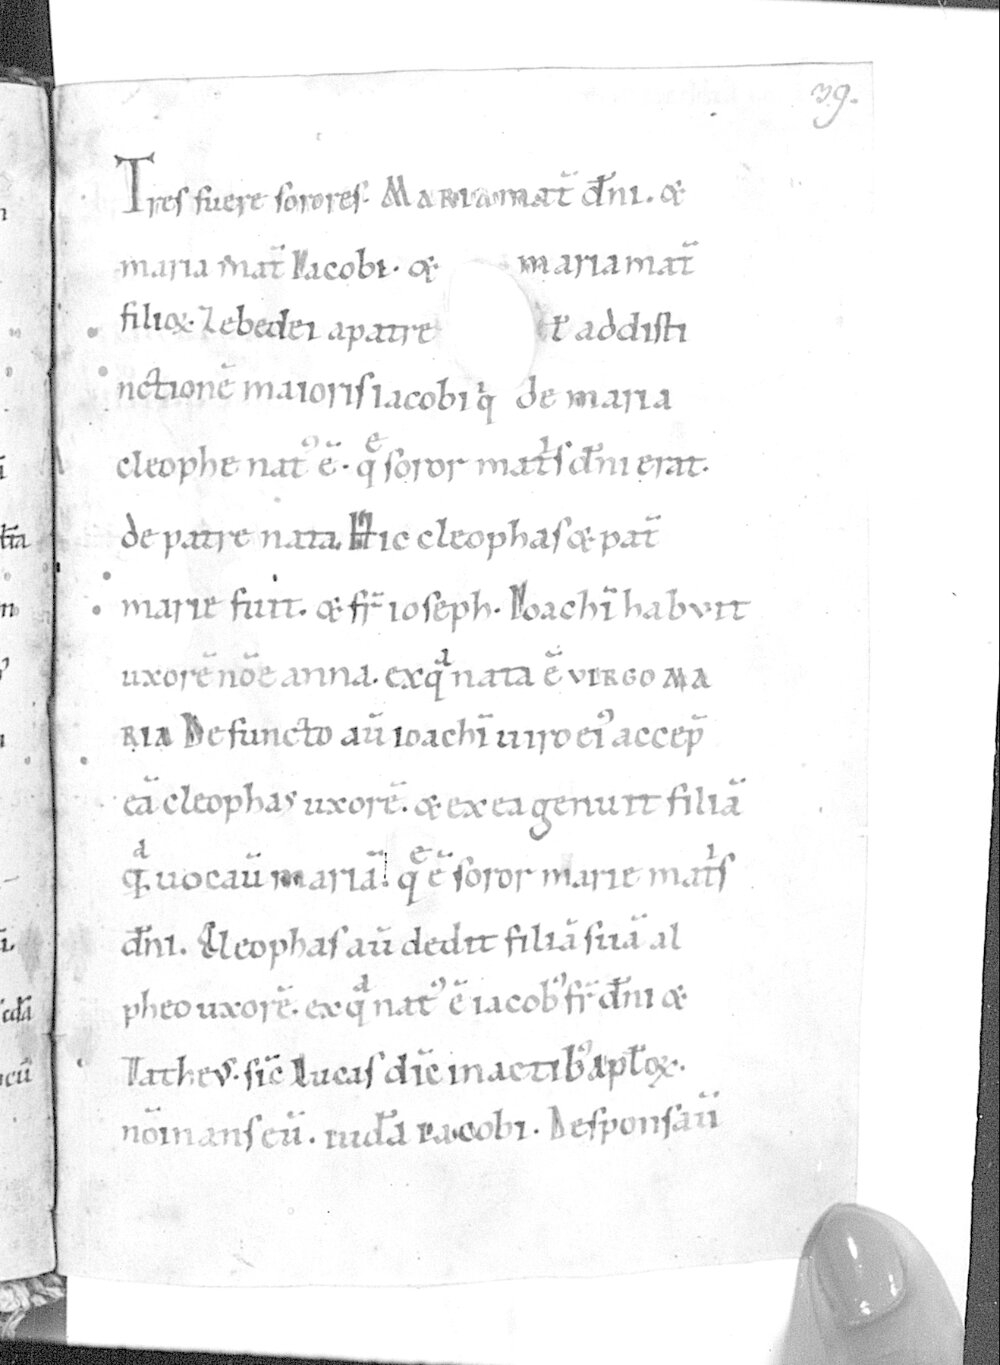 39.
Tres fuere sorores. Maria mat̄ dn̄i. &
maria mat̄ Iacobi. & maria mat̄
filioꝝ Zebedei a patre addisti
nctionē maioris iacobi qⁱ de maria
cleophe nat᾿ ē. q̄ᵉ soror matⁱs dn̄i erat.
de patre nata. Hic cleophas & pat̄
marie fuit. & fr̄ ioseph. Ioachī habuit
uxorē nōe anna. ex qᵃ nata ē VIRGO MA
RIA Defuncto aū ioachī uiro ei᾿ accep̄
eā cleophas uxorē. & ex ea genuit filiā
qᵃ. uocaū mariā. qᵉ ē soror marie matⁱs
dn̄i. Cleophas aū dedit filiā suā al
pheo uxorē. ex qᵃ nat᾿ ē iacob᾿ fr̄ dn̄i &
sic̄ Lucas dic̄ in actib᾿ apl̄oꝝ.
nōinans eū. iudā iacobi. Desponsaū